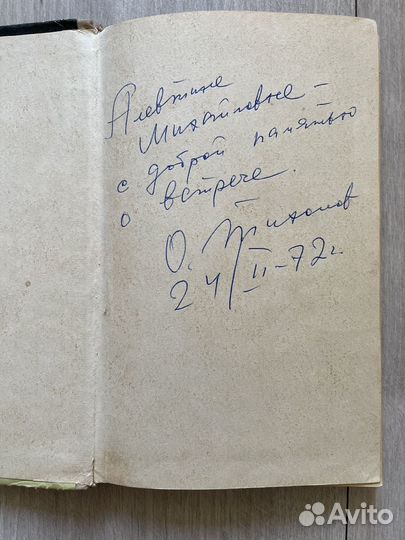 Алевтине
Михайловне –
с доброй памятью
о встрече.
О. Тихонов
24/II–72г.
Avito